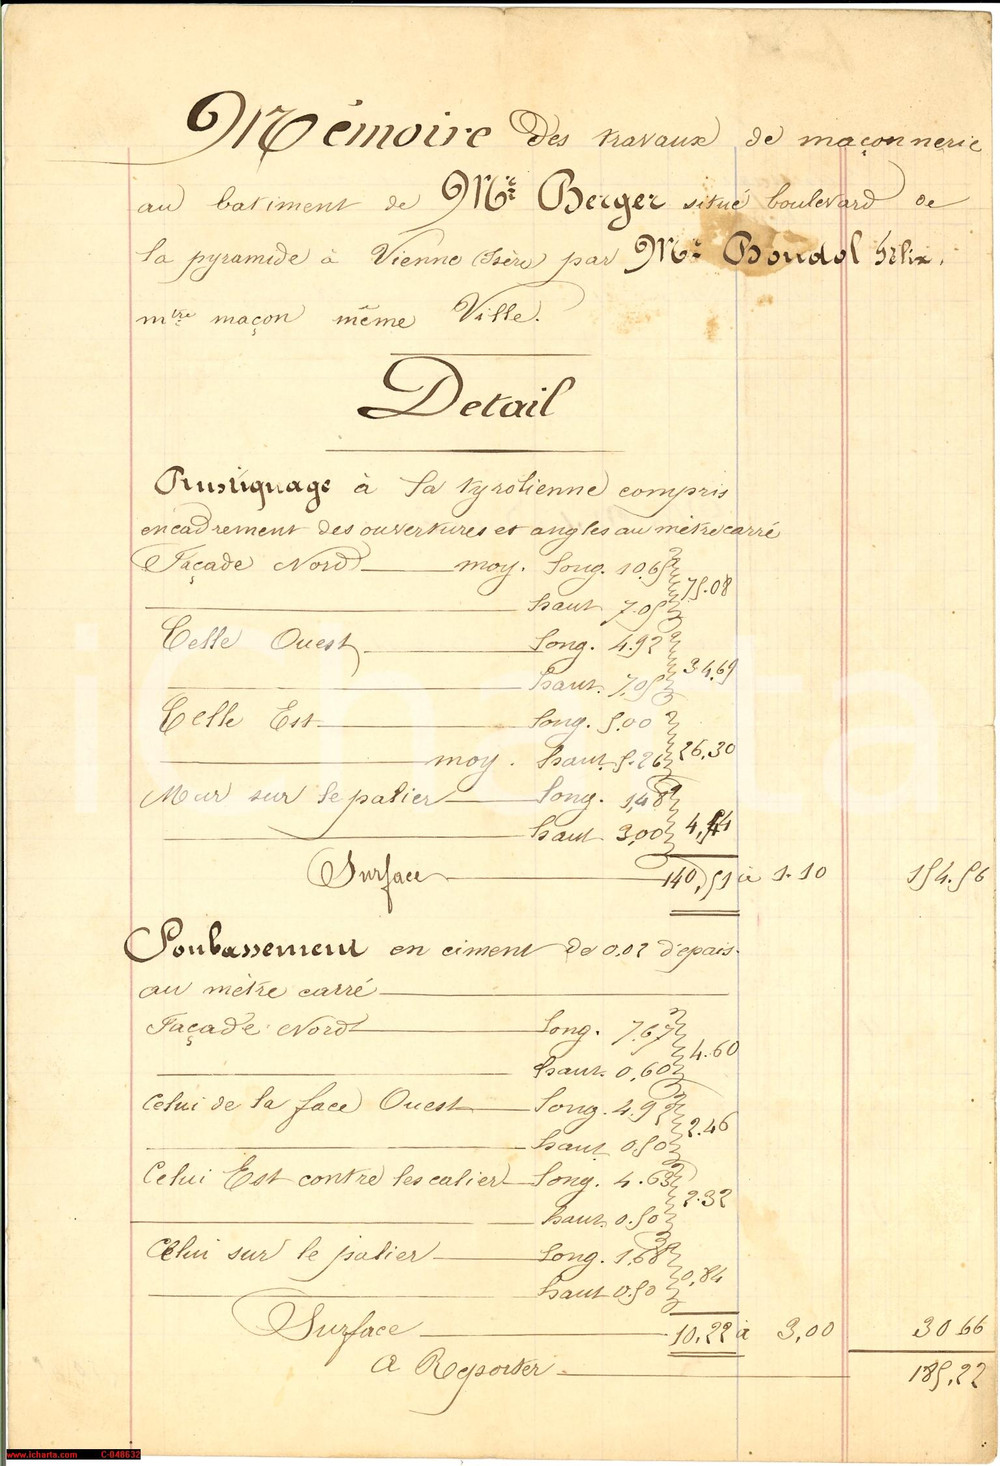 Mémoire Des travaux de maçonnerie
au batiment de Mr Berger situé boulevard de
la pyramide à Vienne (Isère) par Mr Boudol Félix,
mtre maçon même Ville.
Detail
Rustiquage à la tyrolienne compris
encadrement des ouvertures et angles au mètre carré
Façade Nord moy. long. 10.65
haut 7.05 75.08
Celle Ouest long. 4.92
haut. 7.05 34.69
Celle Est long. 5.00
moy. haut. 5.26 26,30
Mur sur le palier long. 1,48
haut 3,00 4,44
Surface 140,51 à 1.10 154.56
Soubassement en ciment de 0.02 d'épais.
au mètre carré
Façade Nord long. 7.67
haut. 0,60 4.60
Celui de la face Ouest long. 4.92
haut 0.50 2.46
Celui Est contre lescalier long. 4.63
haut 0.50 2.32
Celui sur le palier long. 1,68
haut 0.50 0,84
Surface 10,22 à 3,00 30 66
A Reporter 185,22
iCharta
www.icharta.com C-048632